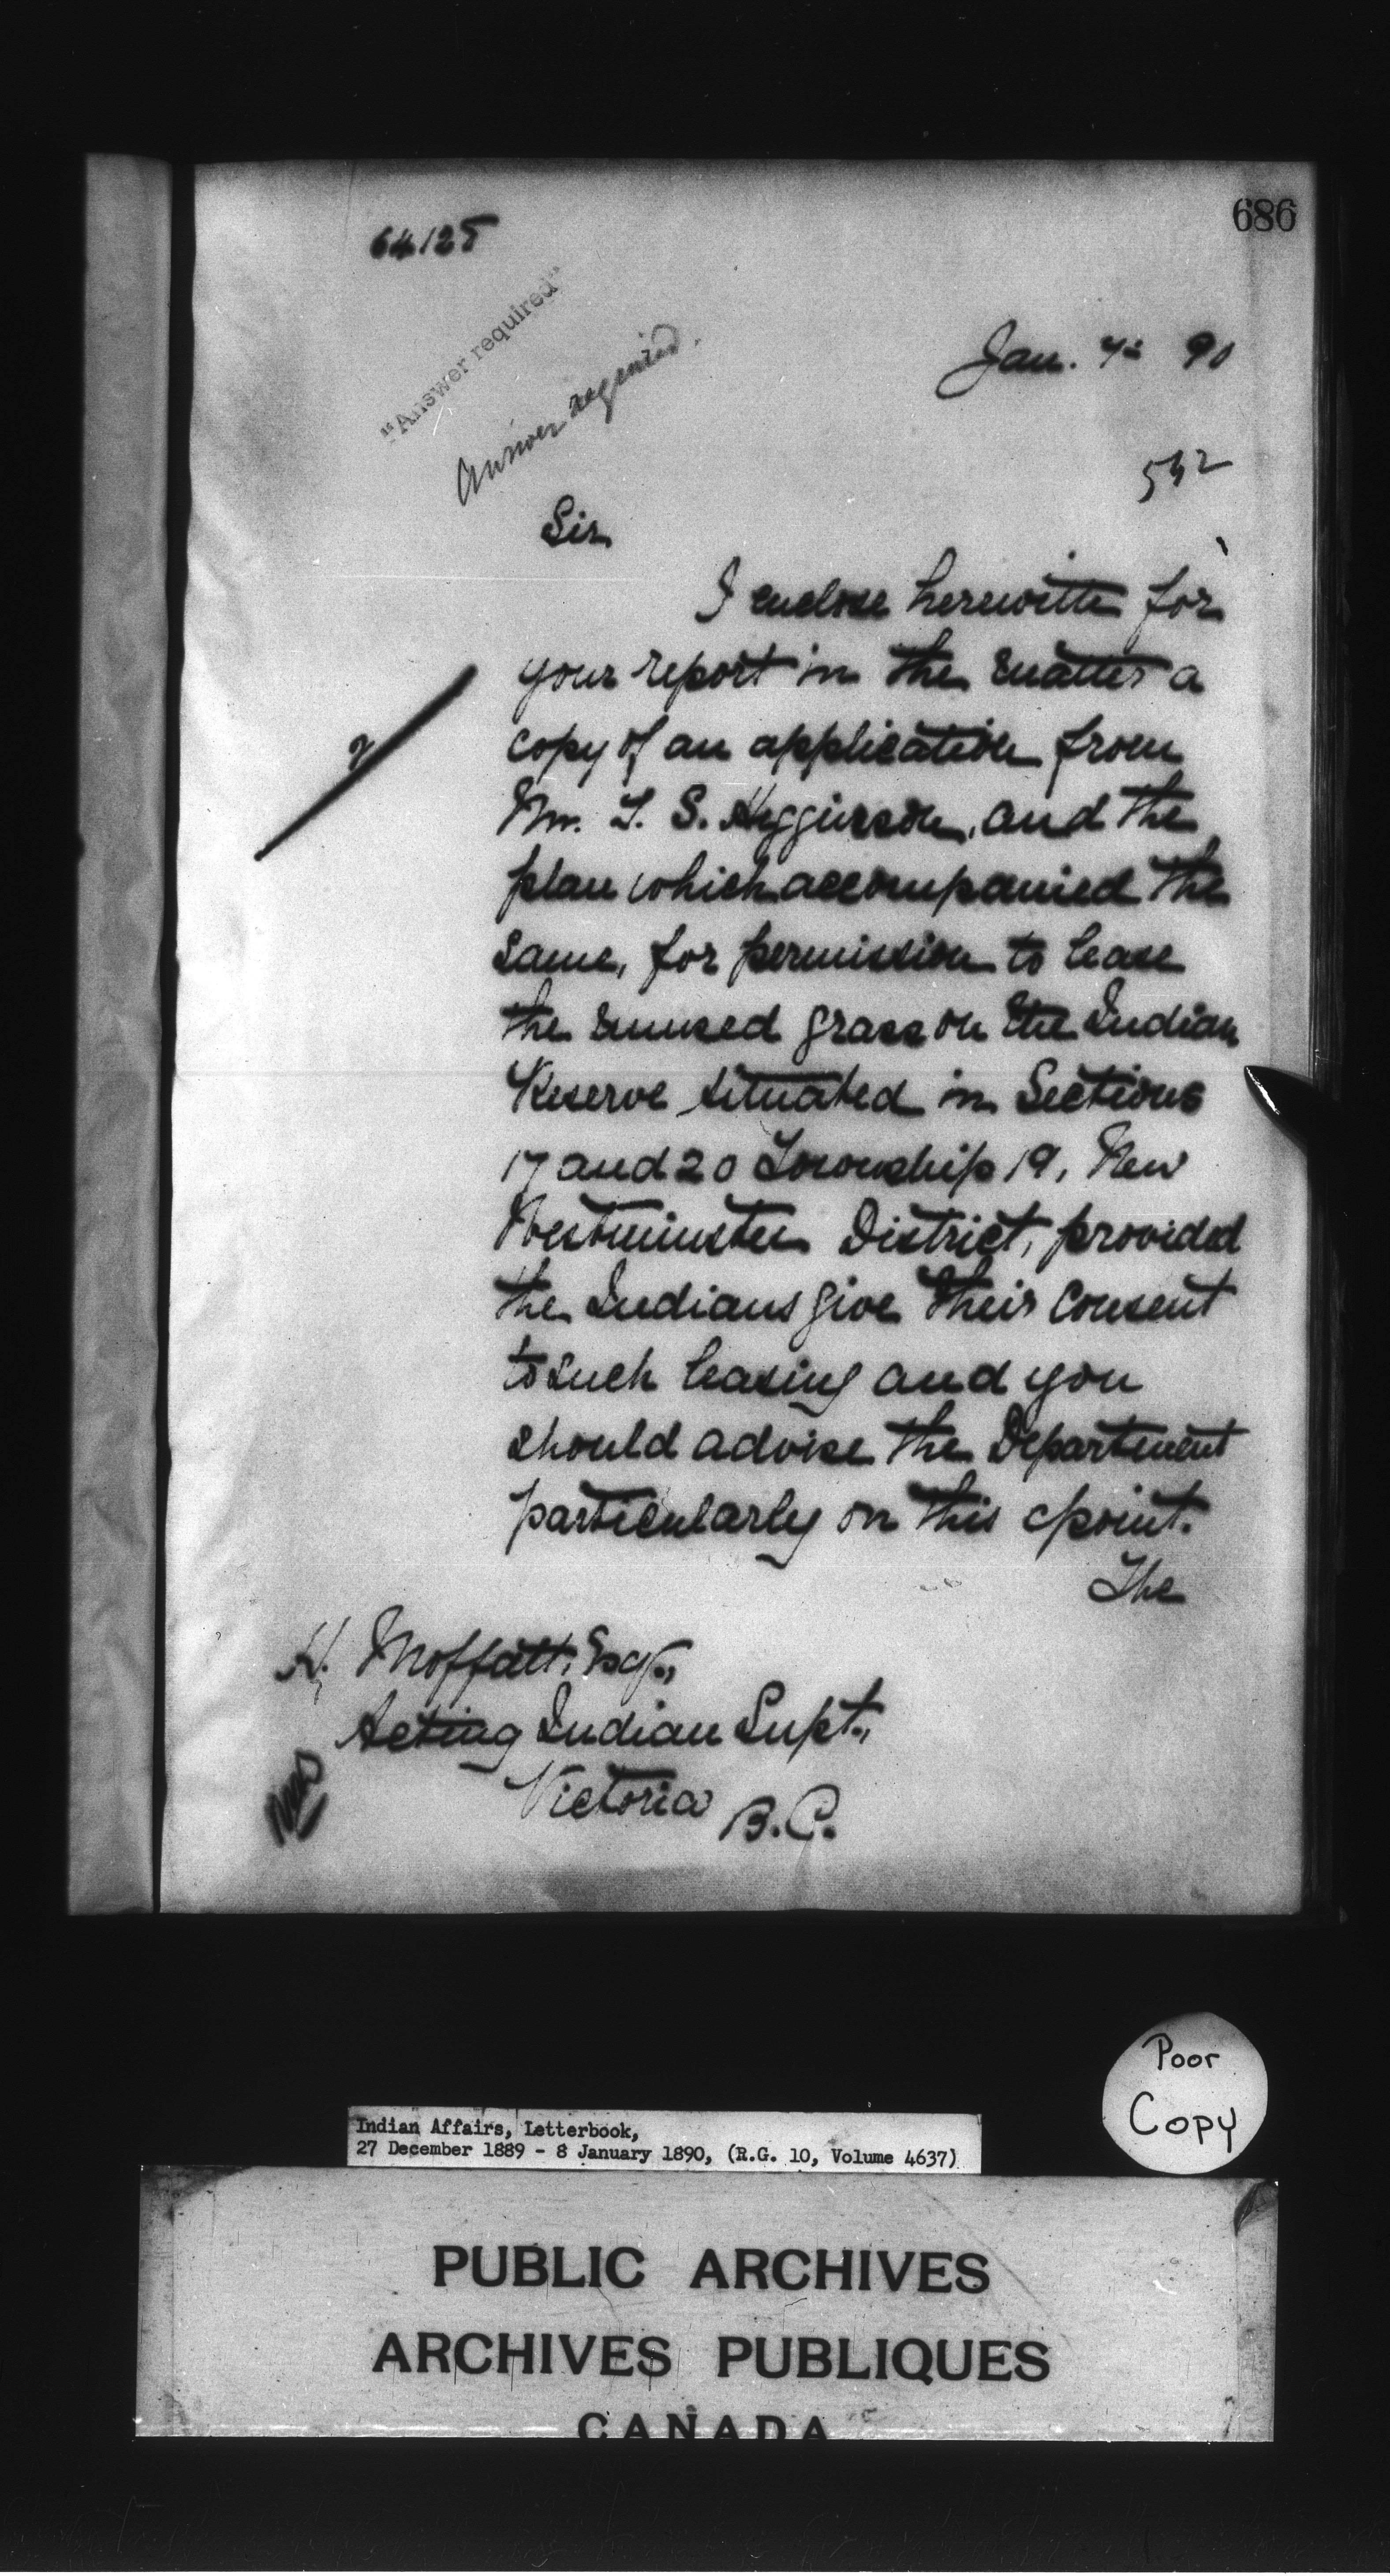 686
64125
"Answer required"
Answer required.
Jan. 7th 90
Sir,
I enclose herewith for
your report in the matter a
copy of an application from
Mr. T. S. Higginson, and the
plan which accompanied the
same, for permission to lease
the unused grass on the Indian
Reserve situated in Sections
17 and 20 Township 19, New
Westminster District, provided
the Indians give their consent
to such leasing and you
should advise the Department
particularly on this point.
The
H. Moffatt, Esq.,
Acting Indian Supt.,
Victoria B.C.
Poor
Copy
Indian Affairs, Letterbook,
27 December 1889 - 8 January 1890, (R.G. 10, Volume 4637)
PUBLIC ARCHIVES
ARCHIVES PUBLIQUES
CANADA